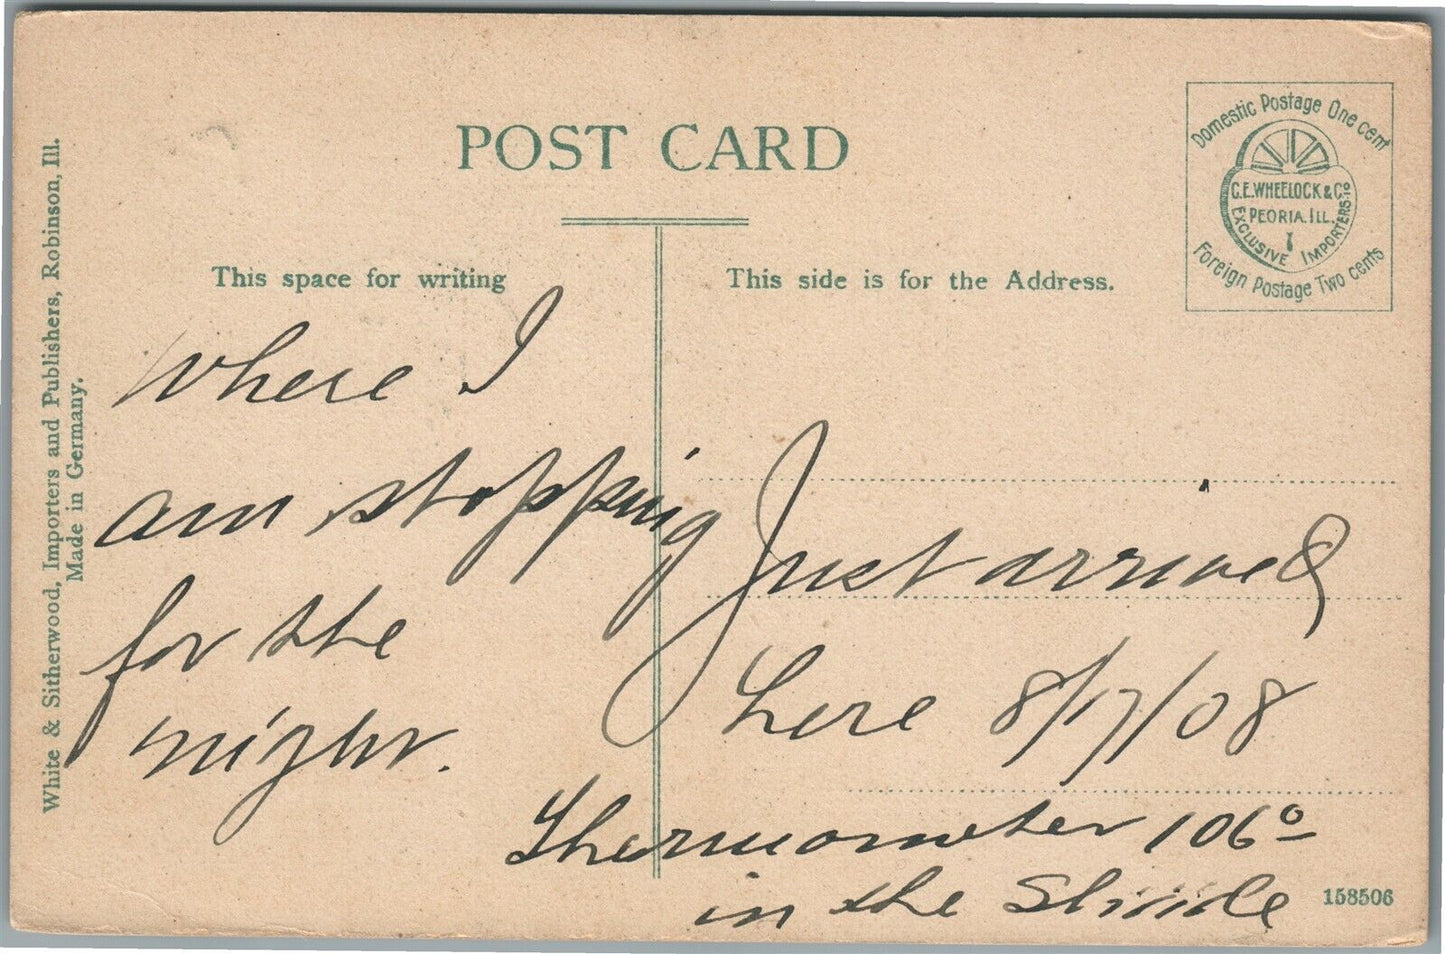 POST CARD
Domestic Postage One cent
C.E. WHEELOCK & Co
PEORIA. ILL.
EXCLUSIVE IMPORTERS
Foreign Postage Two cents
This space for writing
This side is for the Address.
White & Sitherwood, Importers and Publishers, Robinson, Ill.
Made in Germany.
Where I
am stopping
for the
night.
Just arrived
here 8/17/08
Thermometer 106°
in the Shade
158506